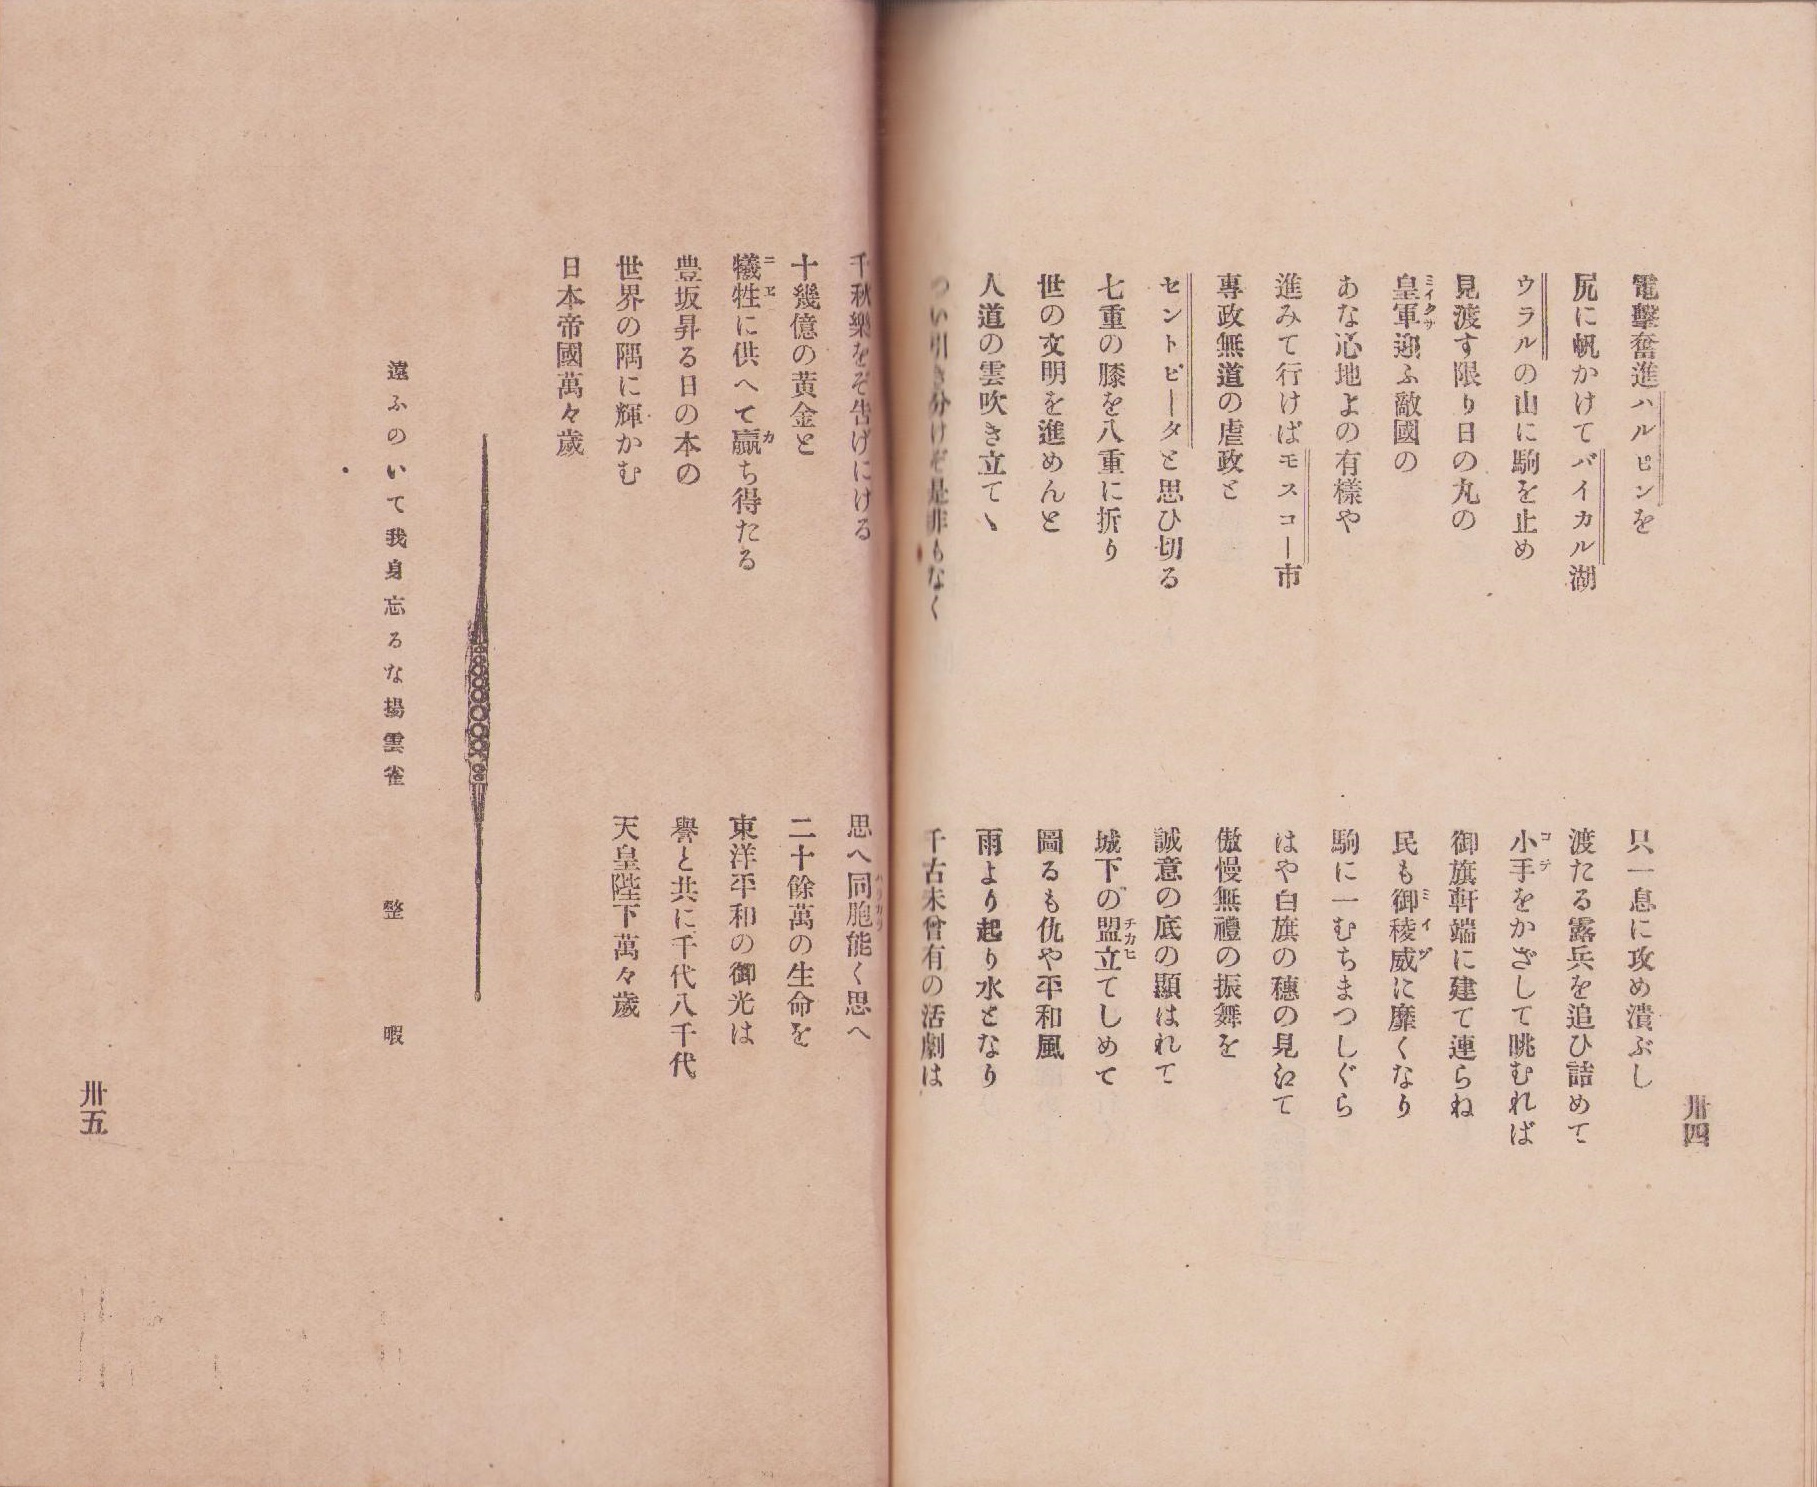 電擊奮進ハルピンを
只一息に攻め潰ぶし
尻に帆かけてバイカル湖
渡たる露兵を追ひ詰めて
ウラルの山に駒を止め
小手をかざして眺むれば
コテ
見渡す限り日の丸の
御旗軒端に建て連らね
皇軍迎ふ敵國の
ミイクサ
民も御稜威に靡くなり
ミイヅ
あな心地よの有樣や
駒に一むちまつしぐら
進みて行けばモスコー市
はや白旗の穗の見江て
專政無道の虐政と
傲慢無禮の振舞を
セントピータと思ひ切る
誠意の底の顯はれて
七重の膝を八重に折り
城下の盟立てしめて
チカヒ
世の文明を進めんと
圖るも仇や平和風
人道の雲吹き立てヽ
雨より起り水となり
つい引き分けぞ是非もなく
千古未曾有の活劇は
卅四
千秋樂をぞ告げにける
思へ同胞能く思へ
十幾億の黄金と
二十餘萬の生命を
犧牲に供へて贏ち得たる
ニヱ
カ
東洋平和の御光は
豊坂昇る日の本の
譽と共に千代八千代
世界の隅に輝かむ
天皇陛下萬々歲
日本帝國萬々歲
遠ふのいて我身忘るな揚雲雀
整暇
卅五